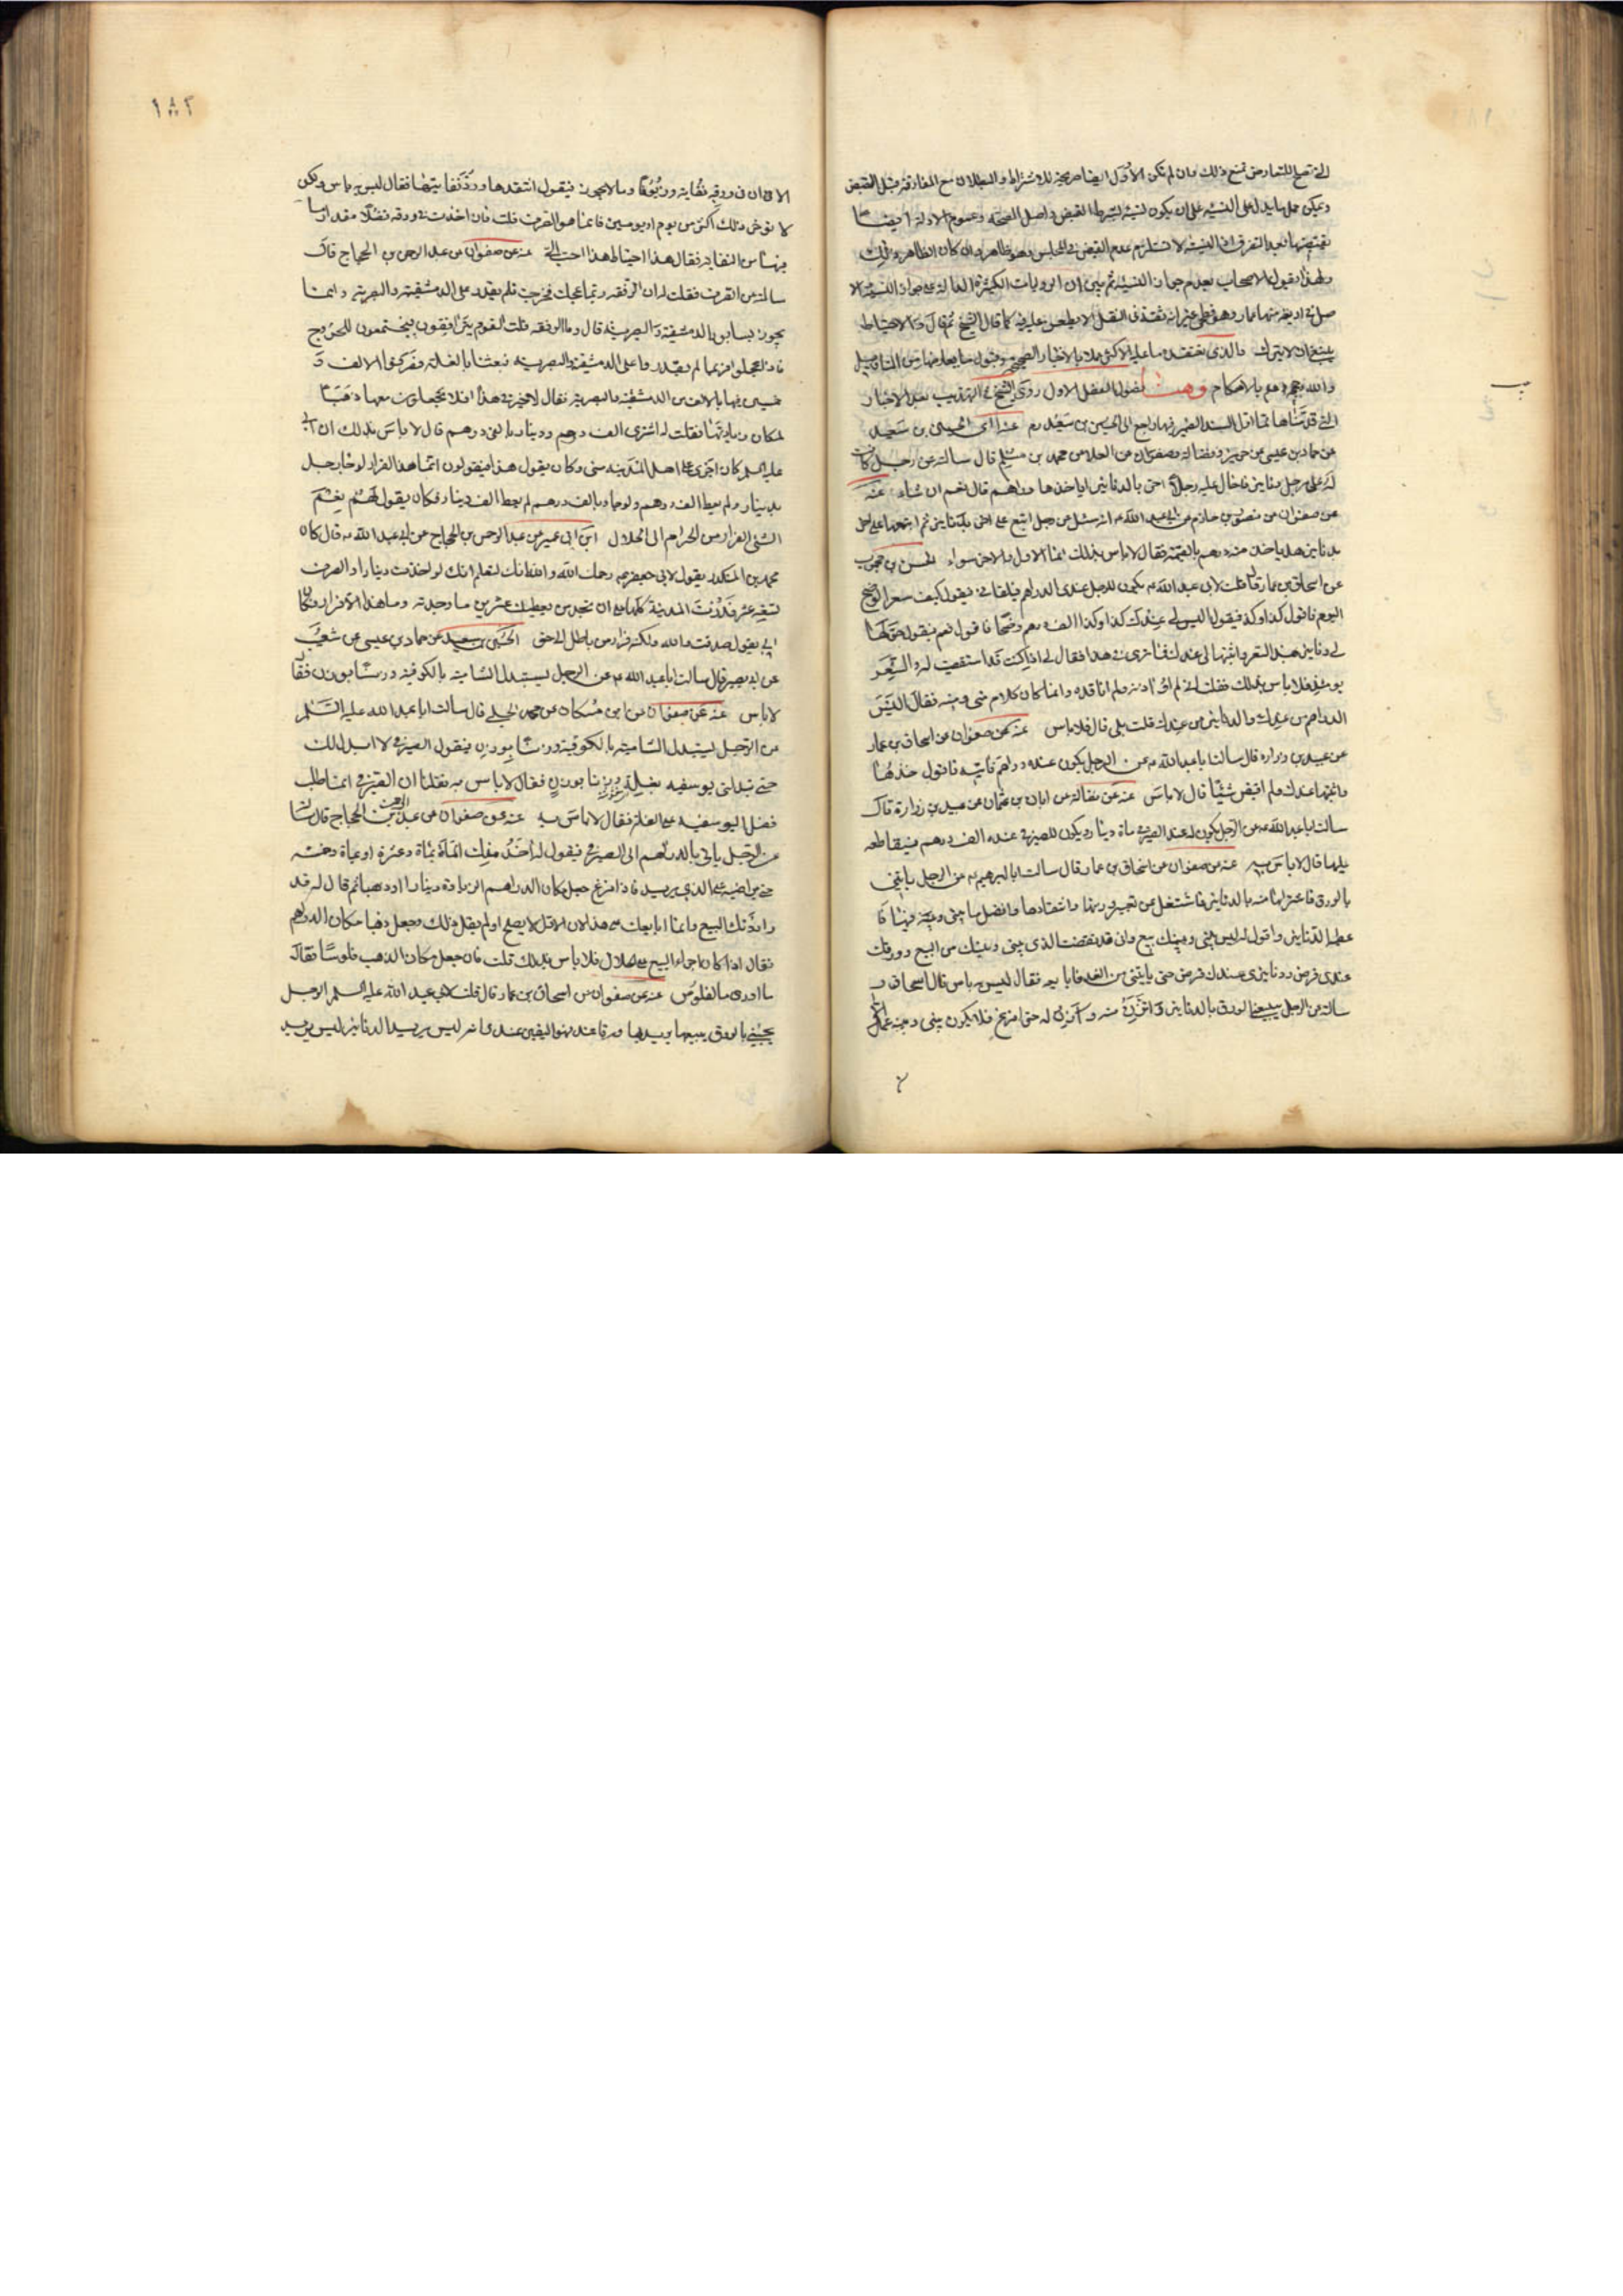 التي تصلح للتعارض تمنع ذلك وان لم تكن الاول ايضا صريحة للاشتراط والبطلان مع المفارقة قبل القبض
ويمكن حمل ما يدل على النسيه على ان يكون نسيئة لشرط القبض واصل الصحة وعموم الادلة ايضا
بعد التفرق اذ النسيئة لا تستلزم عدم القبض في المجلس وهو ظاهر وان كان الظاهر ذلك
ولهذا يقول الاصحاب بعدم جواز النسيئة ثم بين ان الروايات الكثيرة الدالة على جواز النسيئة الا
عمار وهو فطحي غير انه ثقة في النقل لا يطعن عليه فيه كما قال الشيخ ثم قال والاحتياط
ينبغي ان لا يترك والذي نعتقد ما عليه الاكثر عملا بالاخبار الصحيحة
والله وحججه هم بالاحكام فصول الفصل الاول روى الشيخ في التهذيب بعد الاخبار
التي قدمناها الى الحسين بن سعيد عنه اي الحسين بن سعيد
عن حماد بن عيسى عن حريز وفضالة وصفوان عن العلا عن محمد بن مسلم قال سالته عن رجل كانت
له على رجل دنانير فاحال عليه رجلا اخر بالدنانير اياخذها دراهم قال نعم ان شاء عنه
عن صفوان عن منصور بن حازم عن ابي عبد الله ع انه سئل عن رجل اتبع على اخر بدنانير ثم اتبعها على اخر
بدنانير هل ياخذ منه دراهم بالقيمة فقال لا باس بذلك انما الاول والاخر سواء الحسن بن محبوب
عن اسحاق بن عمار قال قلت لابي عبد الله ع يكون للرجل عندي الدراهم فيلقاني فيقول كيف سعر الوضح
اليوم فاقول كذا وكذا فيقول اليس لي عندك كذا وكذا الف درهم وضحا فاقول نعم فيقول حولها
لي دنانير بهذا السعر واثبتها لي عندك فما ترى في هذا فقال لي اذا كنت قد استقصيت له السعر
يومئذ فلا باس بذلك فقلت اني لم اوازنه ولم اناقده وانما كان كلام مني ومنه فقال اليس
الدراهم من عندك والدنانير من عندك قلت بلى قال فلا باس عنه عن صفوان عن اسحاق بن عمار
عن عبيد بن زرارة قال سالت ابا عبد الله ع عن الرجل يكون عنده دراهم فاتيه فاقول خذها
واثبتها عندك ولم اقبض شيئا قال لا باس عنه عن فضالة عن ابان بن عثمان عن عبيد بن زرارة قال
سالت ابا عبد الله ع عن الرجل يكون له عند الصيرفي مائة دينار ويكون للصيرفي عنده الف درهم فيقاطعه
عليها قال لا باس به عنه عن صفوان عن اسحاق بن عمار قال سالت ابا ابراهيم ع عن الرجل ياتيني
بالورق فاشتريها منه بالدنانير فاشتغل عن تعيير وزنها وانتقادها وفضل ما بيني وبينه فيها فا
عطيه الدنانير واقول له ليس بيني وبينك بيع واني قد نقضت الذي بيني وبينك من البيع وورقك
عندي قرض ودنانيري عندك قرض حتى ياتيني من الغد فابايعه فقال ليس به باس قال اسحاق و
سالته عن الرجل يبيعني الورق بالدنانير واتزن منه وازن له حتى افرغ فلا يكون بيني وبينه عمل
١٨٢
الا ان في ورقه نفاية وزيوفا وما لا يجوز فيقول انتقدها ورد نفايتها فقال ليس به باس ولكن
لا تؤخر ذلك اكثر من يوم او يومين فانما هو الصرف قلت فان اخذت في ورقه فضلا مقدار ما
فيها من النفاية فقال هذا احتياط هذا احب الي عنه عن صفوان عن عبد الرحمن بن الحجاج قال
سالته عن الصرف فقلت له ان الرفقة ربما عجلت فخرجت فلم نقدر على الدمشقية والبصرية وانما
يجوز بسابور الدمشقية والبصرية قال وما الرفقة قلت القوم يترافقون يجتمعون للخروج
فاذا عجلوا فربما لم نقدر على الدمشقية والبصرية فبعثنا بالغلة فصرفوا الالف و
خمسين منها بالالف من الدمشقية والبصرية فقال لا خير في هذا افلا تجعلون معها ذهبا
لمكان زيادتها فقلت له اشتري الف درهم ودينارا بالفي درهم قال لا باس بذلك ان ابي
عليه السلم كان اجرى على اهل المدينة مني وكان يقول هذا فيقولون انما هذا الفرار لو جاء رجل
بدينار لم يعط الف درهم ولو جاء بالف درهم لم يعط الف دينار فكان يقول لهم نعم
الشيء الفرار من الحرام الى الحلال ابن ابي عمير عن عبد الرحمن بن الحجاج عن ابي عبد الله ع قال كان
محمد بن المنكدر يقول لابي جعفر ع رحمك الله والله انك لتعلم انك لو اخذت دينارا والصرف
بتسعة عشر فدرت المدينة كلها على ان تجد من يعطيك عشرين ما وجدته وما هذا الا فرارا وكان
ابي يقول صدقت والله ولكنه فرار من باطل الى حق الحسين بن سعيد عن حماد بن عيسى عن شعيب
عن ابي بصير قال سالت ابا عبد الله ع عن الرجل يستبدل الشامية بالكوفية وزنا بوزن فقال
لا باس عنه عن صفوان عن ابن مسكان عن محمد الحلبي قال سالت ابا عبد الله عليه السلم
عن الرجل يستبدل الشامية بالكوفية وزنا بوزن فيقول الصيرفي لا ابدل لك
حتى تبدلني يوسفية بغلة وزنا بوزن فقال لا باس به فقلنا ان الصيرفي انما طلب
فضل اليوسفية على الغلة فقال لا باس به عنه عن صفوان عن عبد الرحمن بن الحجاج قال سالته
عن الرجل ياتي بالدراهم الى الصيرفي فيقول له اخذ منك المائة بمائة وعشرة او بمائة وخمسة
حتى يراضيه على الذي يريد فاذا فرغ جعل مكان الدراهم الزيادة دينارا او ذهبا ثم قال له قد
رادتك البيع وانما ابايعك على هذا لان الاول لا يصلح او لم يقل ذلك وجعل ذهبا مكان الدراهم
فقال اذا كان اجراء البيع على الحلال فلا باس بذلك قلت فان جعل مكان الذهب فلوسا فقال
ما ادري ما الفلوس عنه عن صفوان عن اسحاق بن عمار قال قلت لابي عبد الله عليه السلم الرجل
يجيئني بالورق يبيعها يريد بها ورقا عندي فهو اليقين عندي انه ليس يريد الدنانير ليس يريد